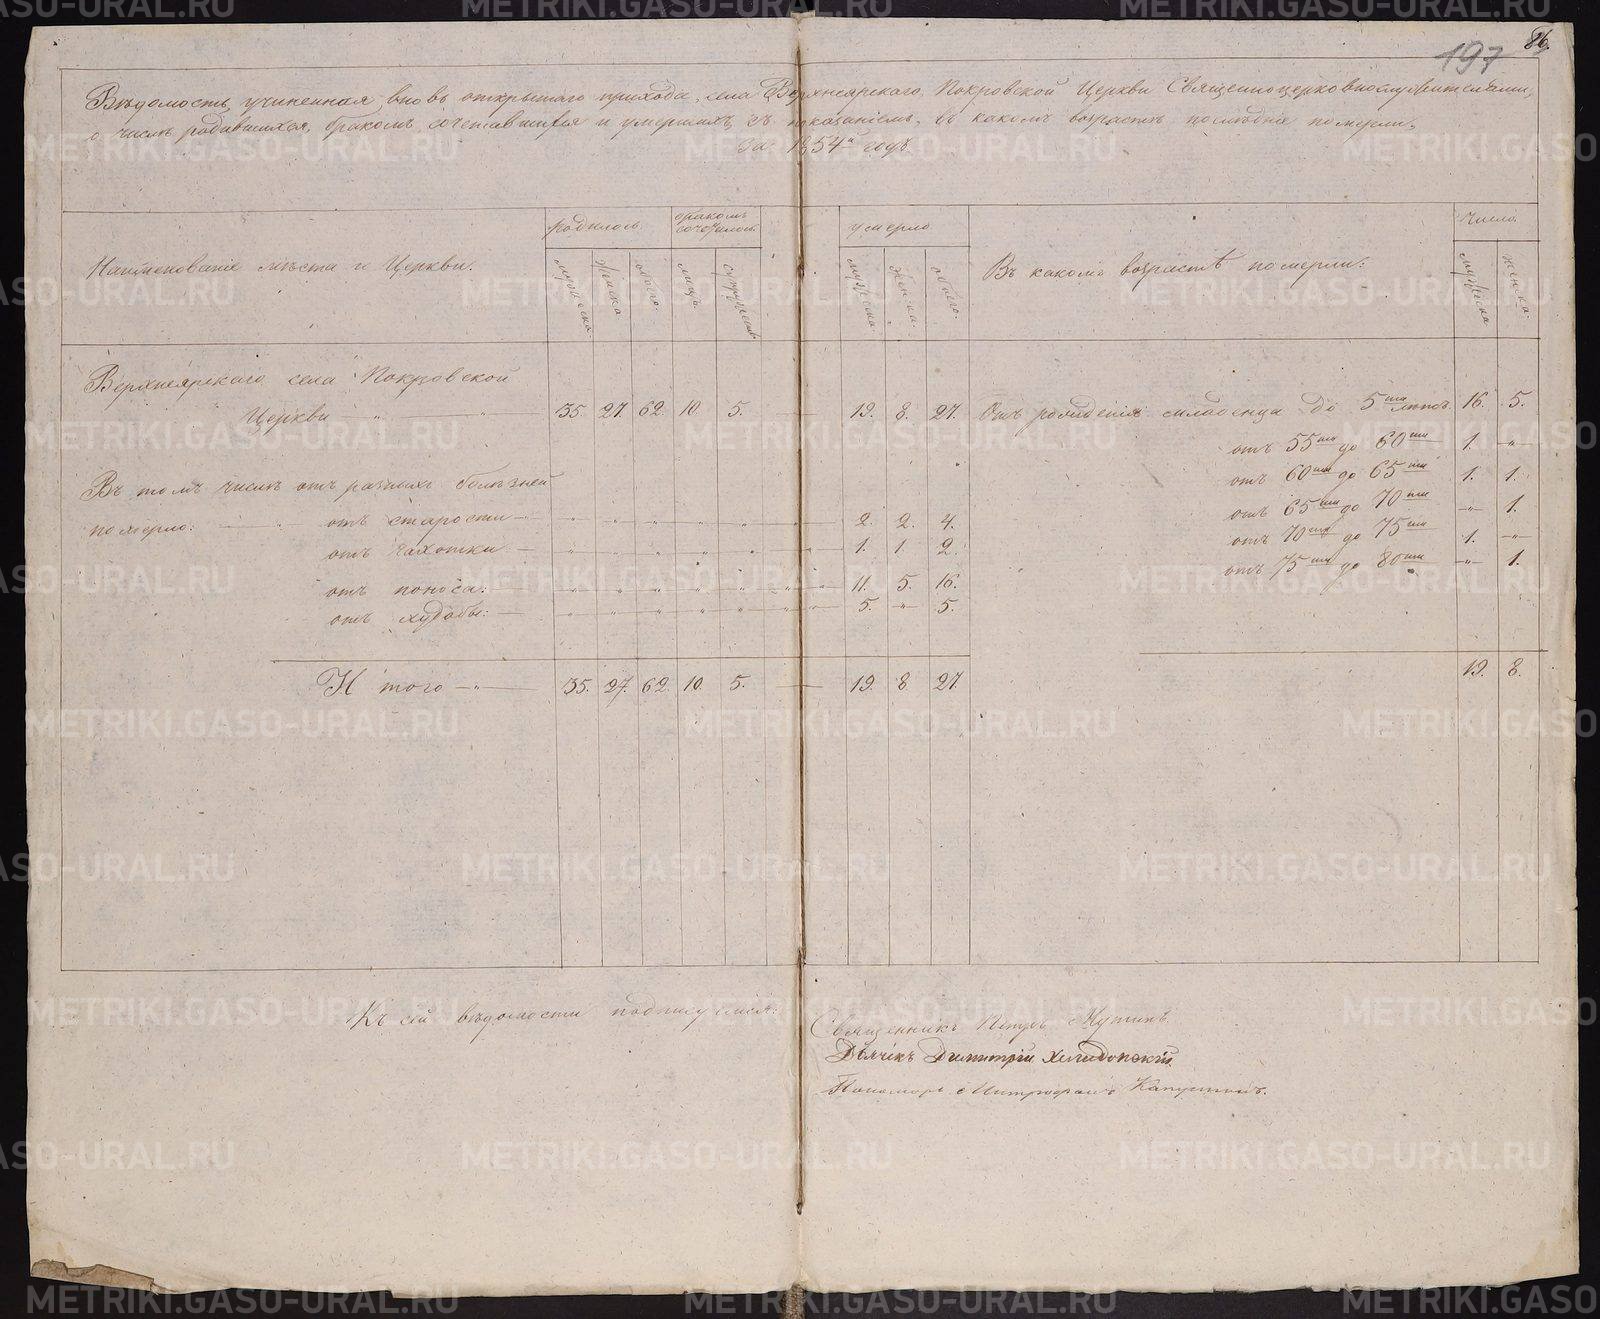 197 86.
Вѣдомость, учиненная вновь открытаго прихода, села Верхнеярскаго Покровской Церкви Священноцерковнослужителями,
о числѣ родившихся, бракомъ сочетавшихся и умершихъ съ показаніемъ, въ какомъ возрастѣ послѣдніе померли,
за 1854й годъ.
Наименованіе мѣста и Церкви. родилось. бракомъ сочеталось умерло Въ какомъ возрастѣ померли: Число
мужеска женска обоего лицъ супружествъ мужеска женска. обоего. мужеска женска.
Верхнеярскаго села Покровской
Церкви — „ — „ — 35. 27. 62. 10. 5. — 19. 8. 27. Отъ рожденія младенца до 5ти лѣтъ. 16. 5.
отъ 55ти до 60ти 1. „
Въ томъ числѣ отъ разныхъ болѣзней отъ 60ти до 65ти 1. 1.
померло: — „ отъ старости — 2. 2. 4. отъ 65ти до 70ти „ 1.
отъ чахотки — 1. 1. 2. отъ 70ти до 75ти 1. „
отъ поноса: — 11. 5. 16. отъ 75ти до 80ти „ 1.
отъ худобы: — 5. „ 5.
И того — „ — 35. 27. 62. 10. 5. — 19. 8. 27. 19. 8.
Къ сей вѣдомости подписуемся: Священникъ Петръ
Дьячекъ Димитрій Хелидонскій.
Пономарь Митрофанъ Капустинъ.
METRIKI.GASO-URAL.RU